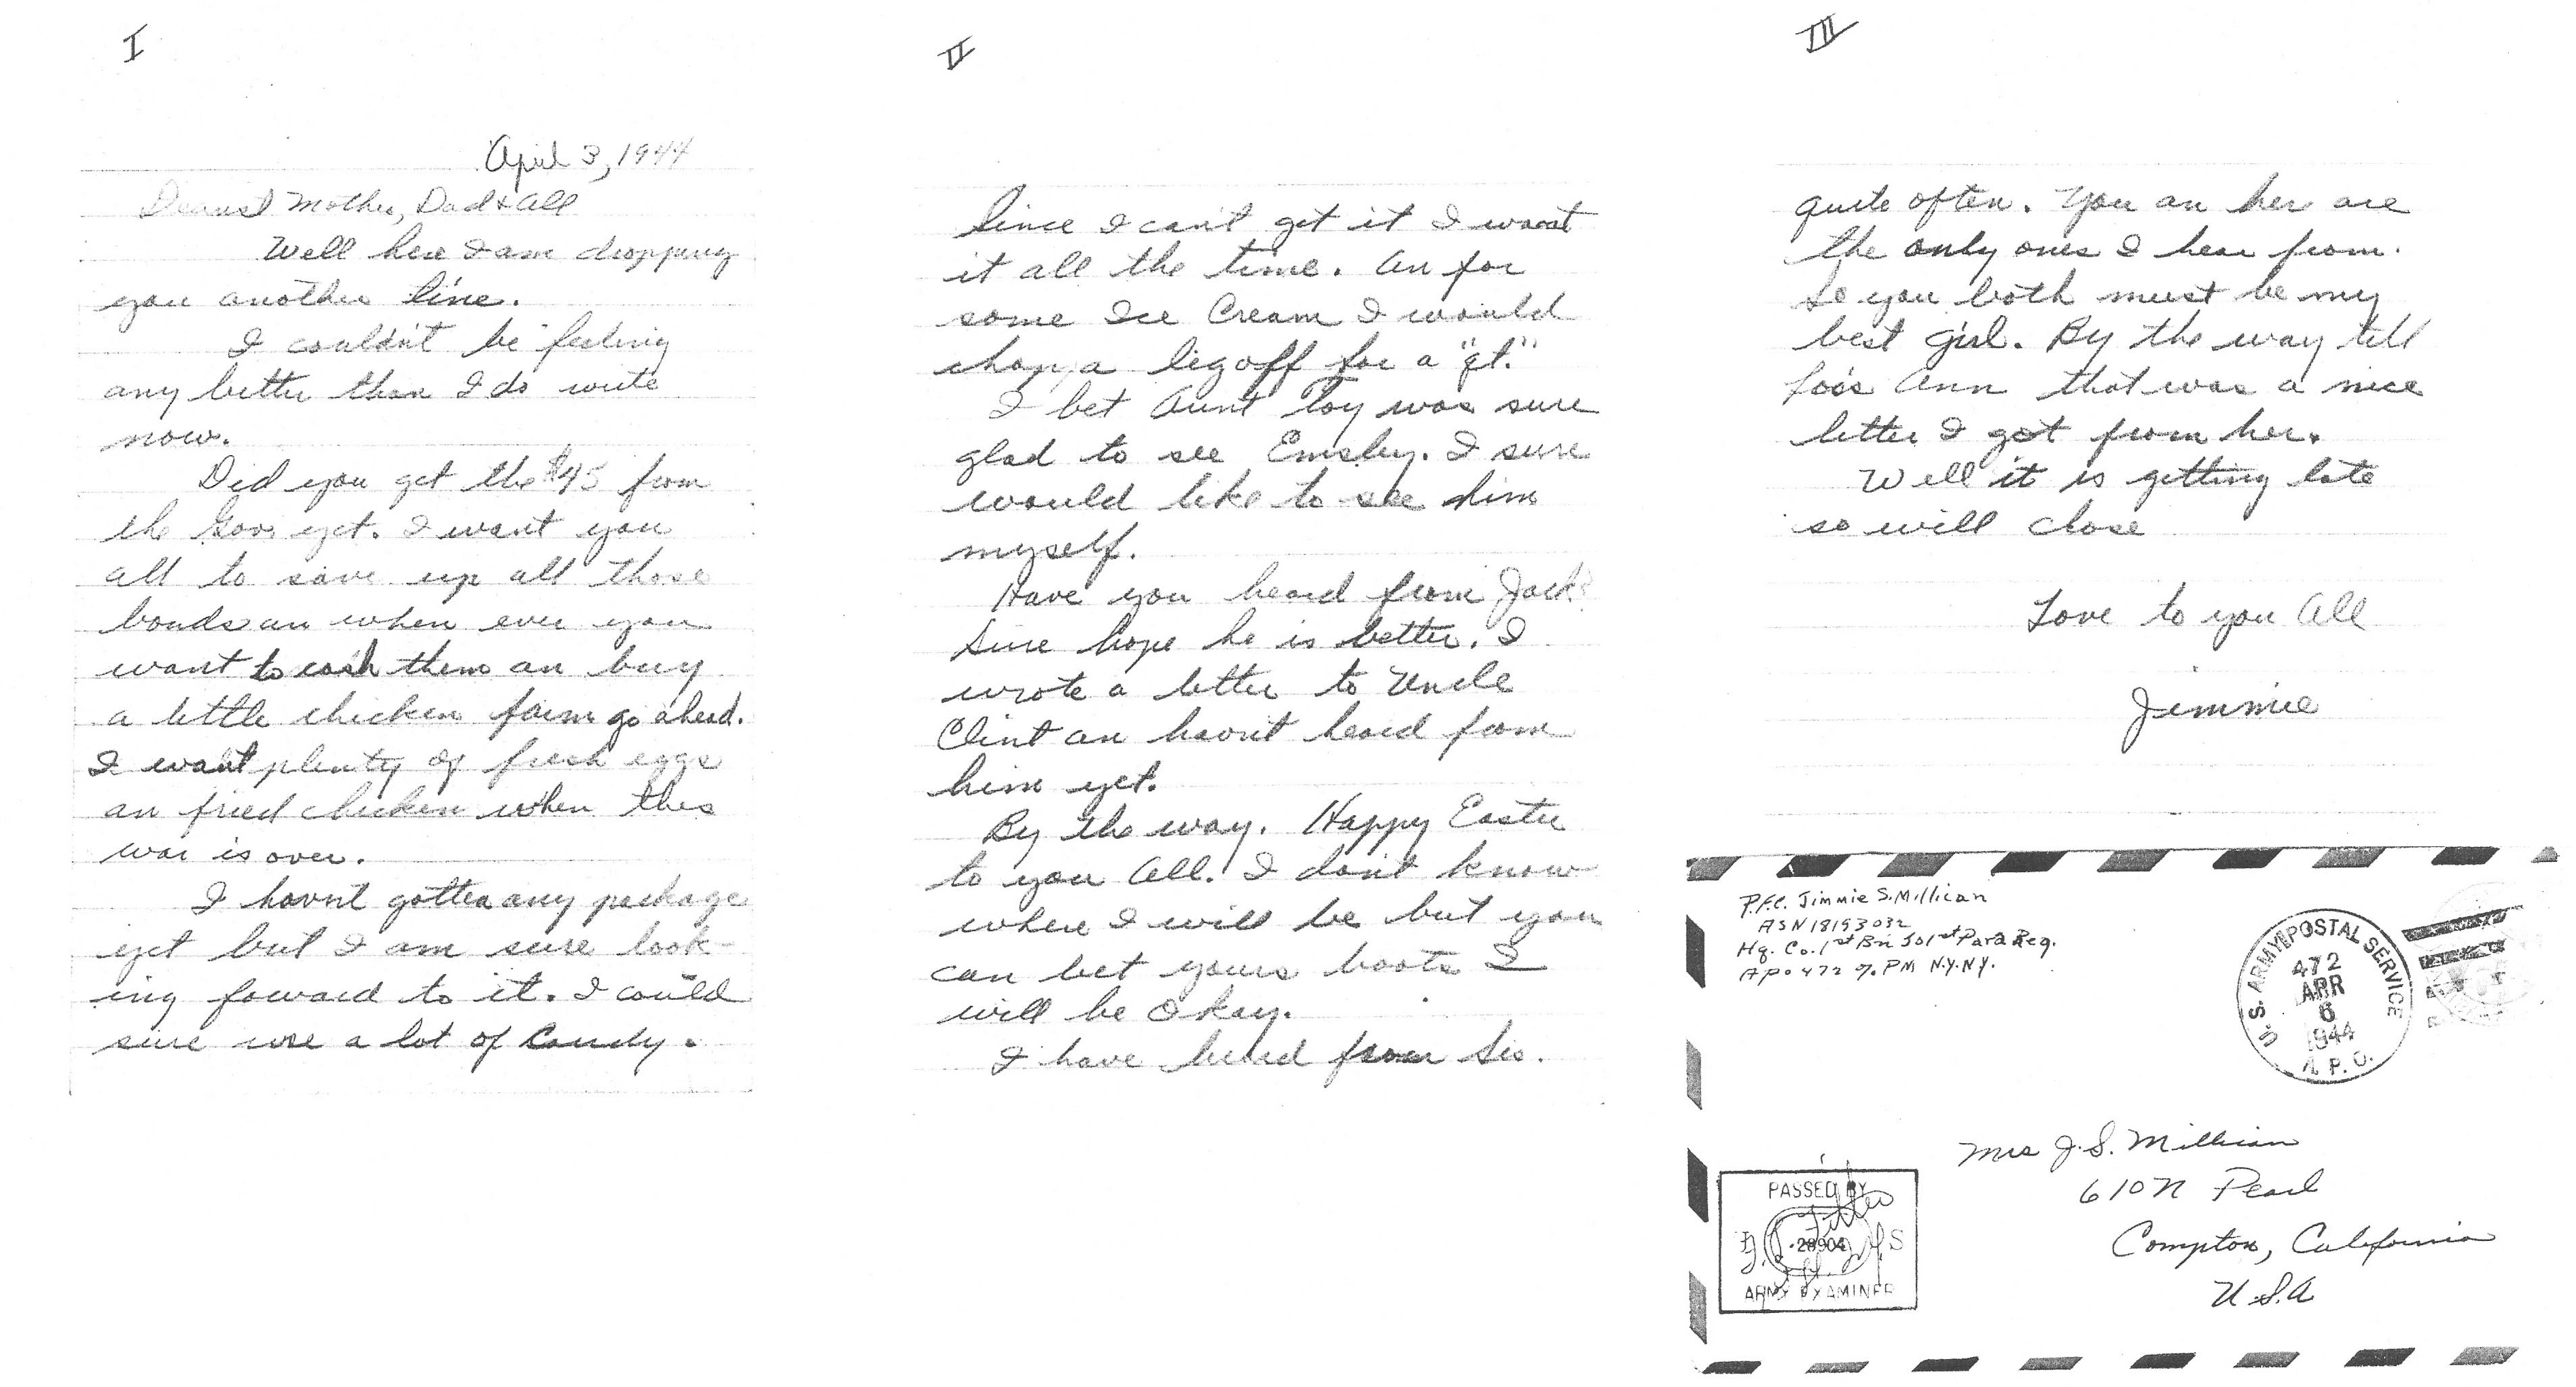 I
April 3, 1944
Dearest Mother, Dad & All
Well here I am dropping
you another line.
I couldn't be feeling
any better than I do write
now.
Did you get the $45 from
the Gov. yet. I want you
all to save up all those
bonds an when ever you
want to cash them an buy
a little chicken farm go ahead.
I want plenty of fresh eggs
an fried chicken when this
war is over.
I havnt gotten any package
yet but I am sure look-
ing foward to it. I could
sure use a lot of Candy.
II
Since I can't get it I want
it all the time. An for
some Ice Cream I would
chop a leg off for a "qt."
I bet Aunt Toy was sure
glad to see Emsley. I sure
would like to see him
myself.
Have you heard from Jack?
Sure hope he is better. I
wrote a letter to Uncle
Clint an havn't heard from
him yet.
By the way. Happy Easter
to you All. I don't know
where I will be but you
can bet yours boots I
will be Okay.
I have heard from Sis.
III
quite often. You an her are
the only ones I hear from.
So you both must be my
best girl. By the way tell
Lois Ann that was a nice
letter I got from her.
Well it is getting late
so will close
Love to you All
Jimmie
P.F.C. Jimmie S. Millican
ASN 18193032
Hq. Co. 1st Bn 501st Para Reg.
APO 472 % PM N.Y. N.Y.
U.S. ARMY POSTAL SERVICE
472
APR
6
1944
A.P.O.
Mrs J. S. Millican
610 N Pearl
Compton, California
U.S.A
PASSED BY
28904
ARMY EXAMINER